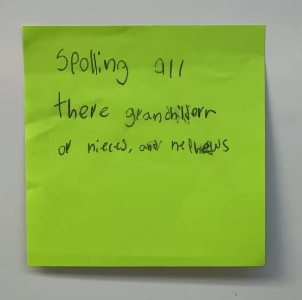 Spolling all
there grandchildern
or nieces, and nephews